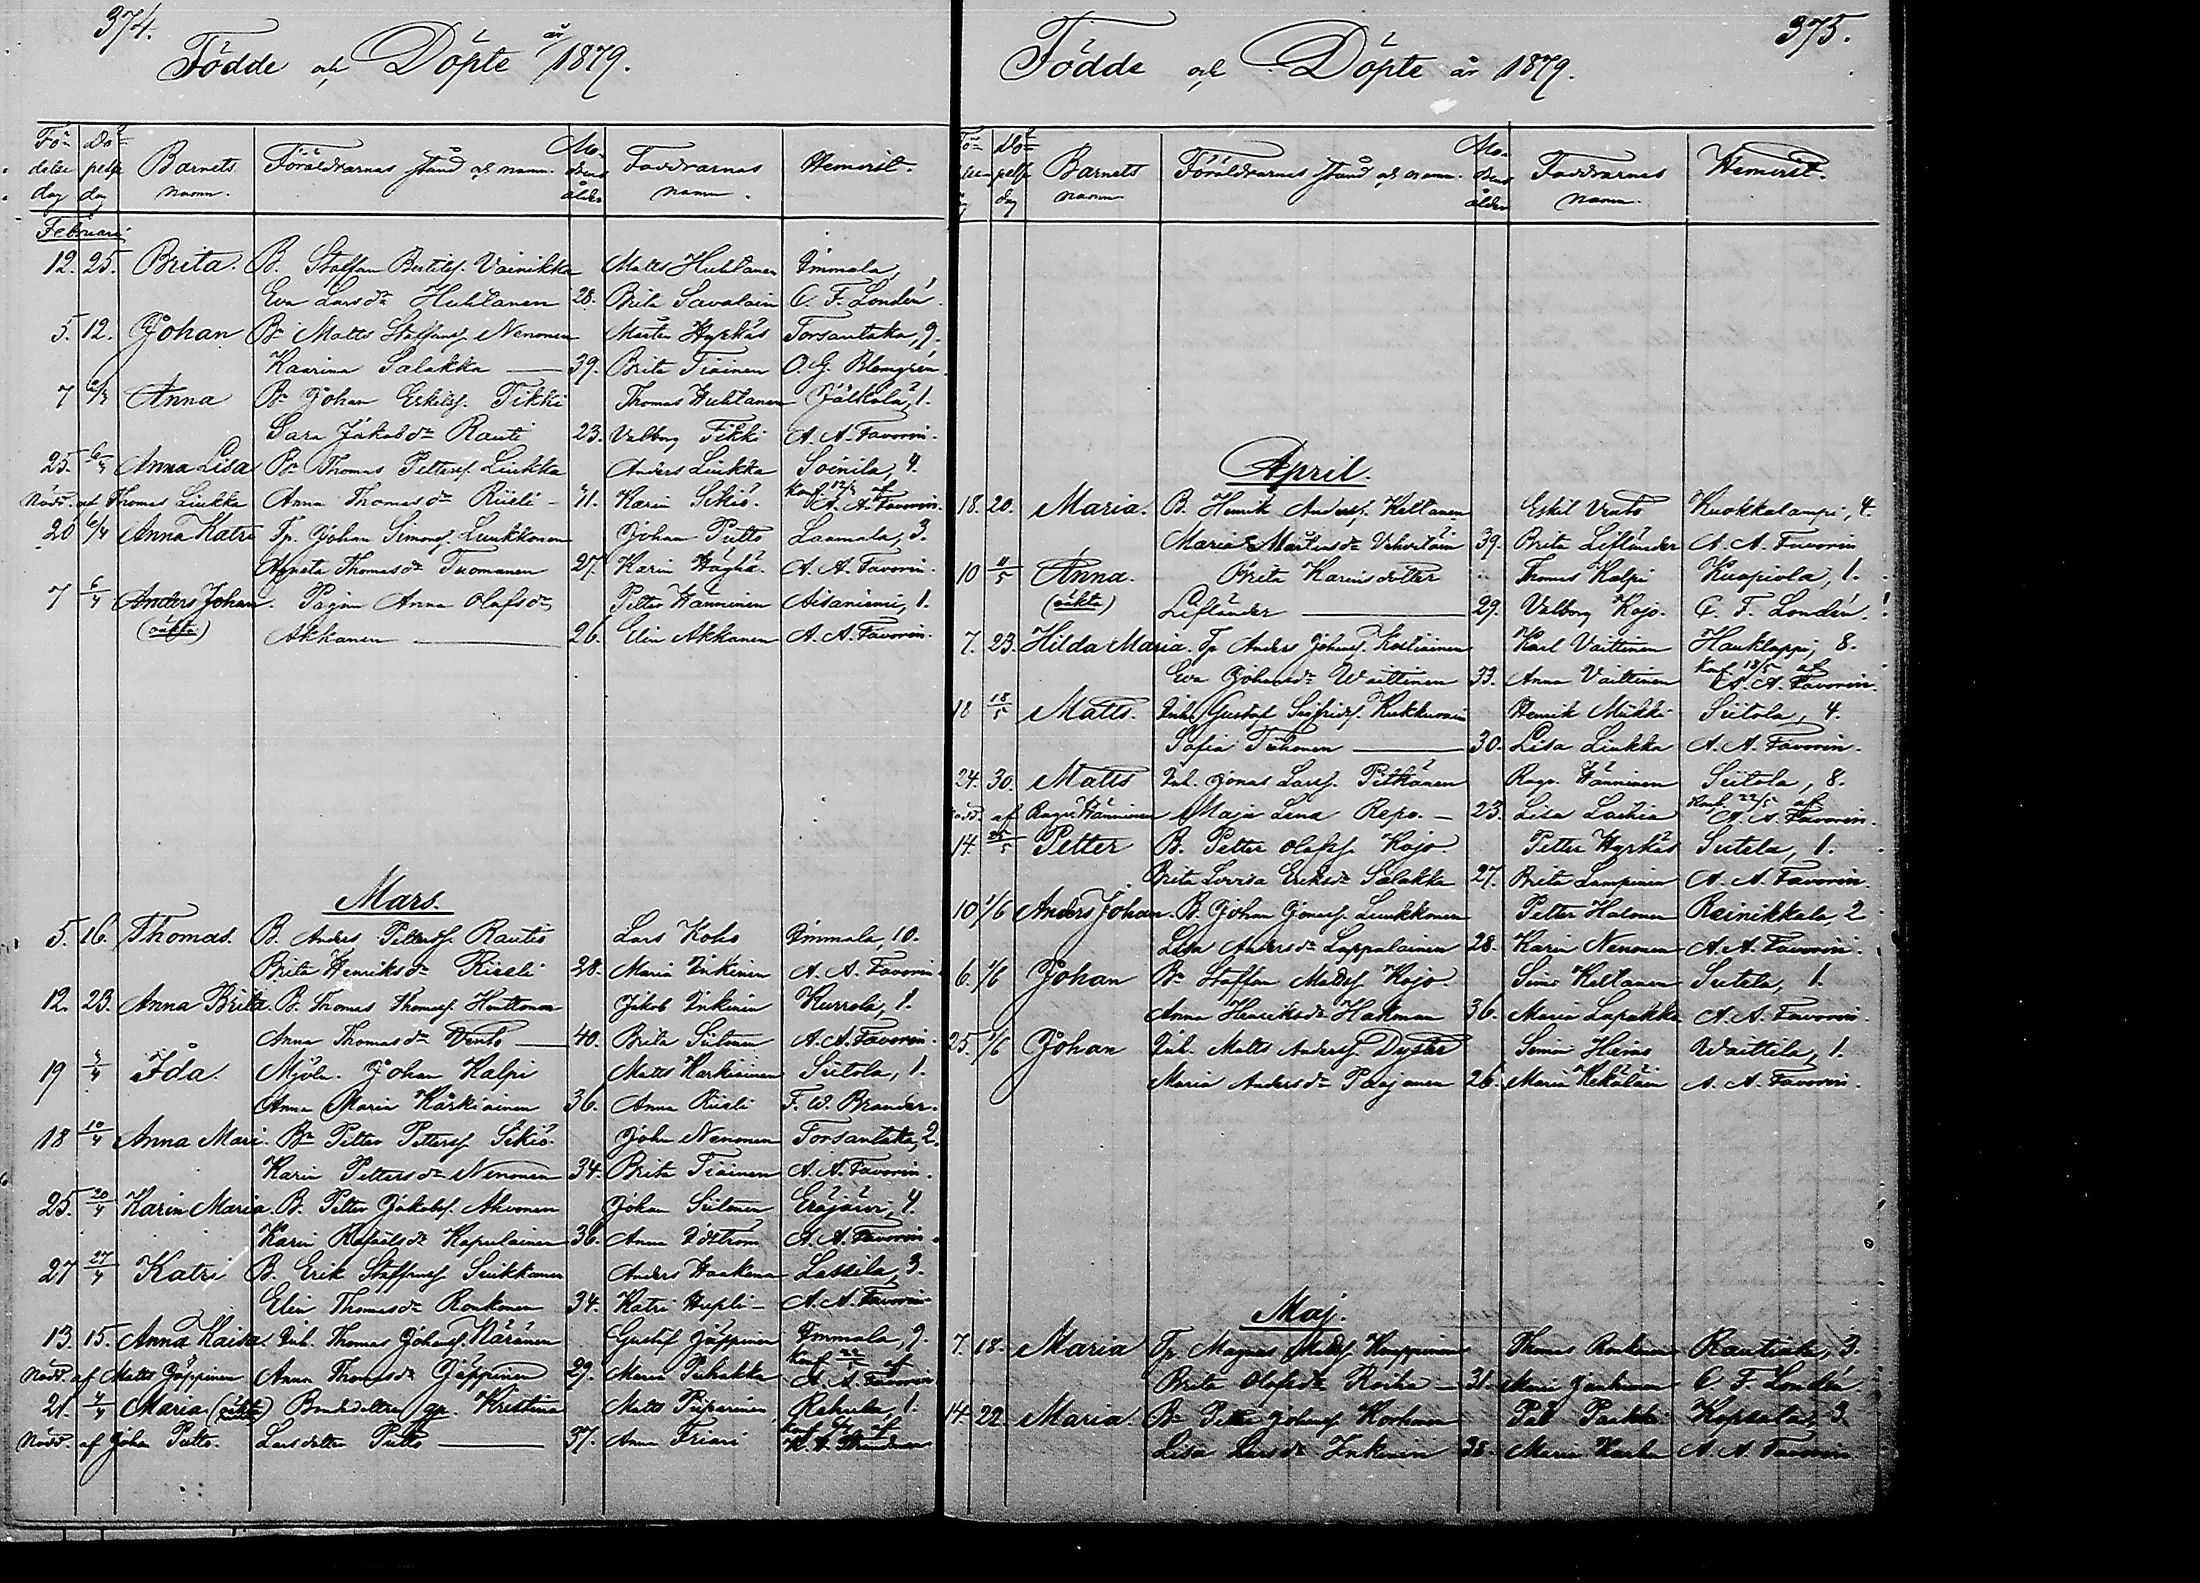 374.
Födde och Döpte år 1879.
Födelse dag Döpelse dag Barnets namn. Föräldrarnas stånd och namn. Modrens ålder Faddrarnas namn. Hemvist.
Februari
12. 25. Brita. B. Staffan Bertilss. Vainikka Matts Huhtanen Immola,
Eva Larsdr Huhtanen 28. Brita Savalain C. F. Londén.
5. 12. Johan Br Matts Staffanss. Nenonen Mårten Hyrkäs Torsantaka, 9.
Kaarina Salakka 39. Brita Tiainen O. G. Blomgrén.
7 Anna Br Johan Eskelss. Tikki Thomas Huhtanen Jälkola, 1.
Sara Jakobdr Rauti 23. Valborg Tikki A. A. Favorin.
25. Anna Lisa Br Thomas Petterss. Liukka Anders Liukka Soinila, 4.
Nödd. af Thomas Liukka Anna Thomasdr Riieli - 41. Karin Sikiö. Konf 12/3 af A. A. Favorin.
20 6/4 Anna Katri Tp. Johan Simonss. Luukkonen Johan Putto Laamala, 3.
Agneta Thomasdr Tuomanen 27. Karin Häghä. A. A. Favorin.
7 6/4 Anders Johan. Pigan Anna Olafsdr Petter Hänninen Aisaniemi, 1.
(oäkta) Akkanen 26. Elin Akkanen A. A. Favorin.
Mars.
5. 16. Thomas. B. Anders Petterss. Rautio Lars Koho Immola, 10.
Brita Henriksdr Riieli 28. Maria Inkinen A. A. Favorin.
12. 23. Anna Brita. B. Thomas Thomass. Huttonen Jakob Inkinen Kurrola, 1.
Anna Thomasdr Vento 40. Brita Siitonen A. A. Favorin.
19 Ida. Mjöln. Johan Kalpi Matts Karkiainen Siitola, 1.
Anna Maria Kärkiainen 36. Anna Riieli F. W. Brander.
18 10/4 Anna Mari. Br Petter Petterss. Sikiö. Johan Nenonen Torsantaka, 2.
Karin Pettersdr Nenonen 34. Brita Tiainen A. A. Favorin.
25. 20/4 Karin Maria. B. Petter Jakobss. Ahvonen Johan Siitonen Eräjärvi, 4.
Karin Rafaelsdr Kapulainen 36. Anna Idström A. A. Favorin.
27 27/4 Katri B. Erik Staffanss. Suikkanen Anders Haakana Lassila, 3.
Elin Thomasdr Ronkonen 34. Katri Hupli - A. A. Favorin.
13. 15. Anna Kaisa. Inh. Thomas Johanss. Näränen Gustaf Jäppinen Immola, 9.
Nödd. af Matts Jäppinen Anna Thomasdr Jäppinen 29. Maria Pihakka Konf 22/5 af A. A. Favorin
21. 4/4 Maria (oäkta) Bondedottern gp. Kristina Matts Piiparinen Rahula, 1.
Nödd. af Johan Putto. Larsdotter Putto 37. Anna Friari
375.
Födde och Döpte år 1879.
Födelse dag Döpelse dag Barnets namn Föräldrarnas stånd och namn. Modrens ålder Faddrarnas namn. Hemvist.
April.
18. 20. Maria. B. Henrik Anderss. Keltanen Eskil Vento Kuokkalampi, 4.
Maria Mårtensdr Vehviläin 39. Brita Lifländer A. A. Favorin
10 11/5 Anna. Brita Karinsdotter Thomas Kalpi Kuapiola, 1.
(oäkta) Lifländer 29. Valborg Kojo. C. F. Londén.
7. 23. Hilda Maria. Tp Anders Johanss. Kostiainen Karl Vaittinen Hauklappi, 8.
Eva Johansdr Waittinen 33. Anna Vaittinen Konf 18/5 af A. A. Favorin.
18 18/5 Matts. Inh. Gustaf Sigfridss. Kukkurain Henrik Mukki Siitola, 4.
Sofia Tiihonen 30. Lisa Liukka A. A. Favorin.
24. 30. Matts Inh. Jonas Larss. Pitkänen Ragv. Hänninen Siitola, 8.
Nödd. af Ragv. Hänninen Maja Lena Repo. - 23. Lisa Lachia Konf 22/5 af A. A. Favorin.
14 25/5 Petter B. Petter Olafss. Kojo Petter Hyrkäs Sutela, 1.
Brita Lovisa Eriksdr Salakka 27. Brita Lampinen A. A. Favorin.
10 1/6 Anders Johan. B. Johan Jonass. Luukkonen Petter Halonen Reinikkala, 2
Lisa Andersdr Lappalainen 28. Karin Nenonen A. A. Favorin.
6. 1/6 Johan Br Staffan Mattss. Kojo Simo Keltanen Sutela, 1.
Anna Henriksdr Hakman 36. Maria Lapakka A. A. Favorin.
25. 1/6 Johan Inh. Matts Anderss. Dyster Simon Haimo Waittila, 1.
Maria Andersdr Paajanen 26. Maria Kekäläin A. A. Favorin.
Maj.
7. 18. Maria Tp. Magnus Mattss. Kauppinen Thomas Ronkainen Rautiala, 3.
Brita Olofsdr Roiha - 31. Maria Janhunen C. F. Londén.
14. 22 Maria. Br Petter Johanss. Korhonen Pål Paakki Kopsala, 3
Lisa Larsdr Inkinen 38. Maria Karhu A. A. Favorin